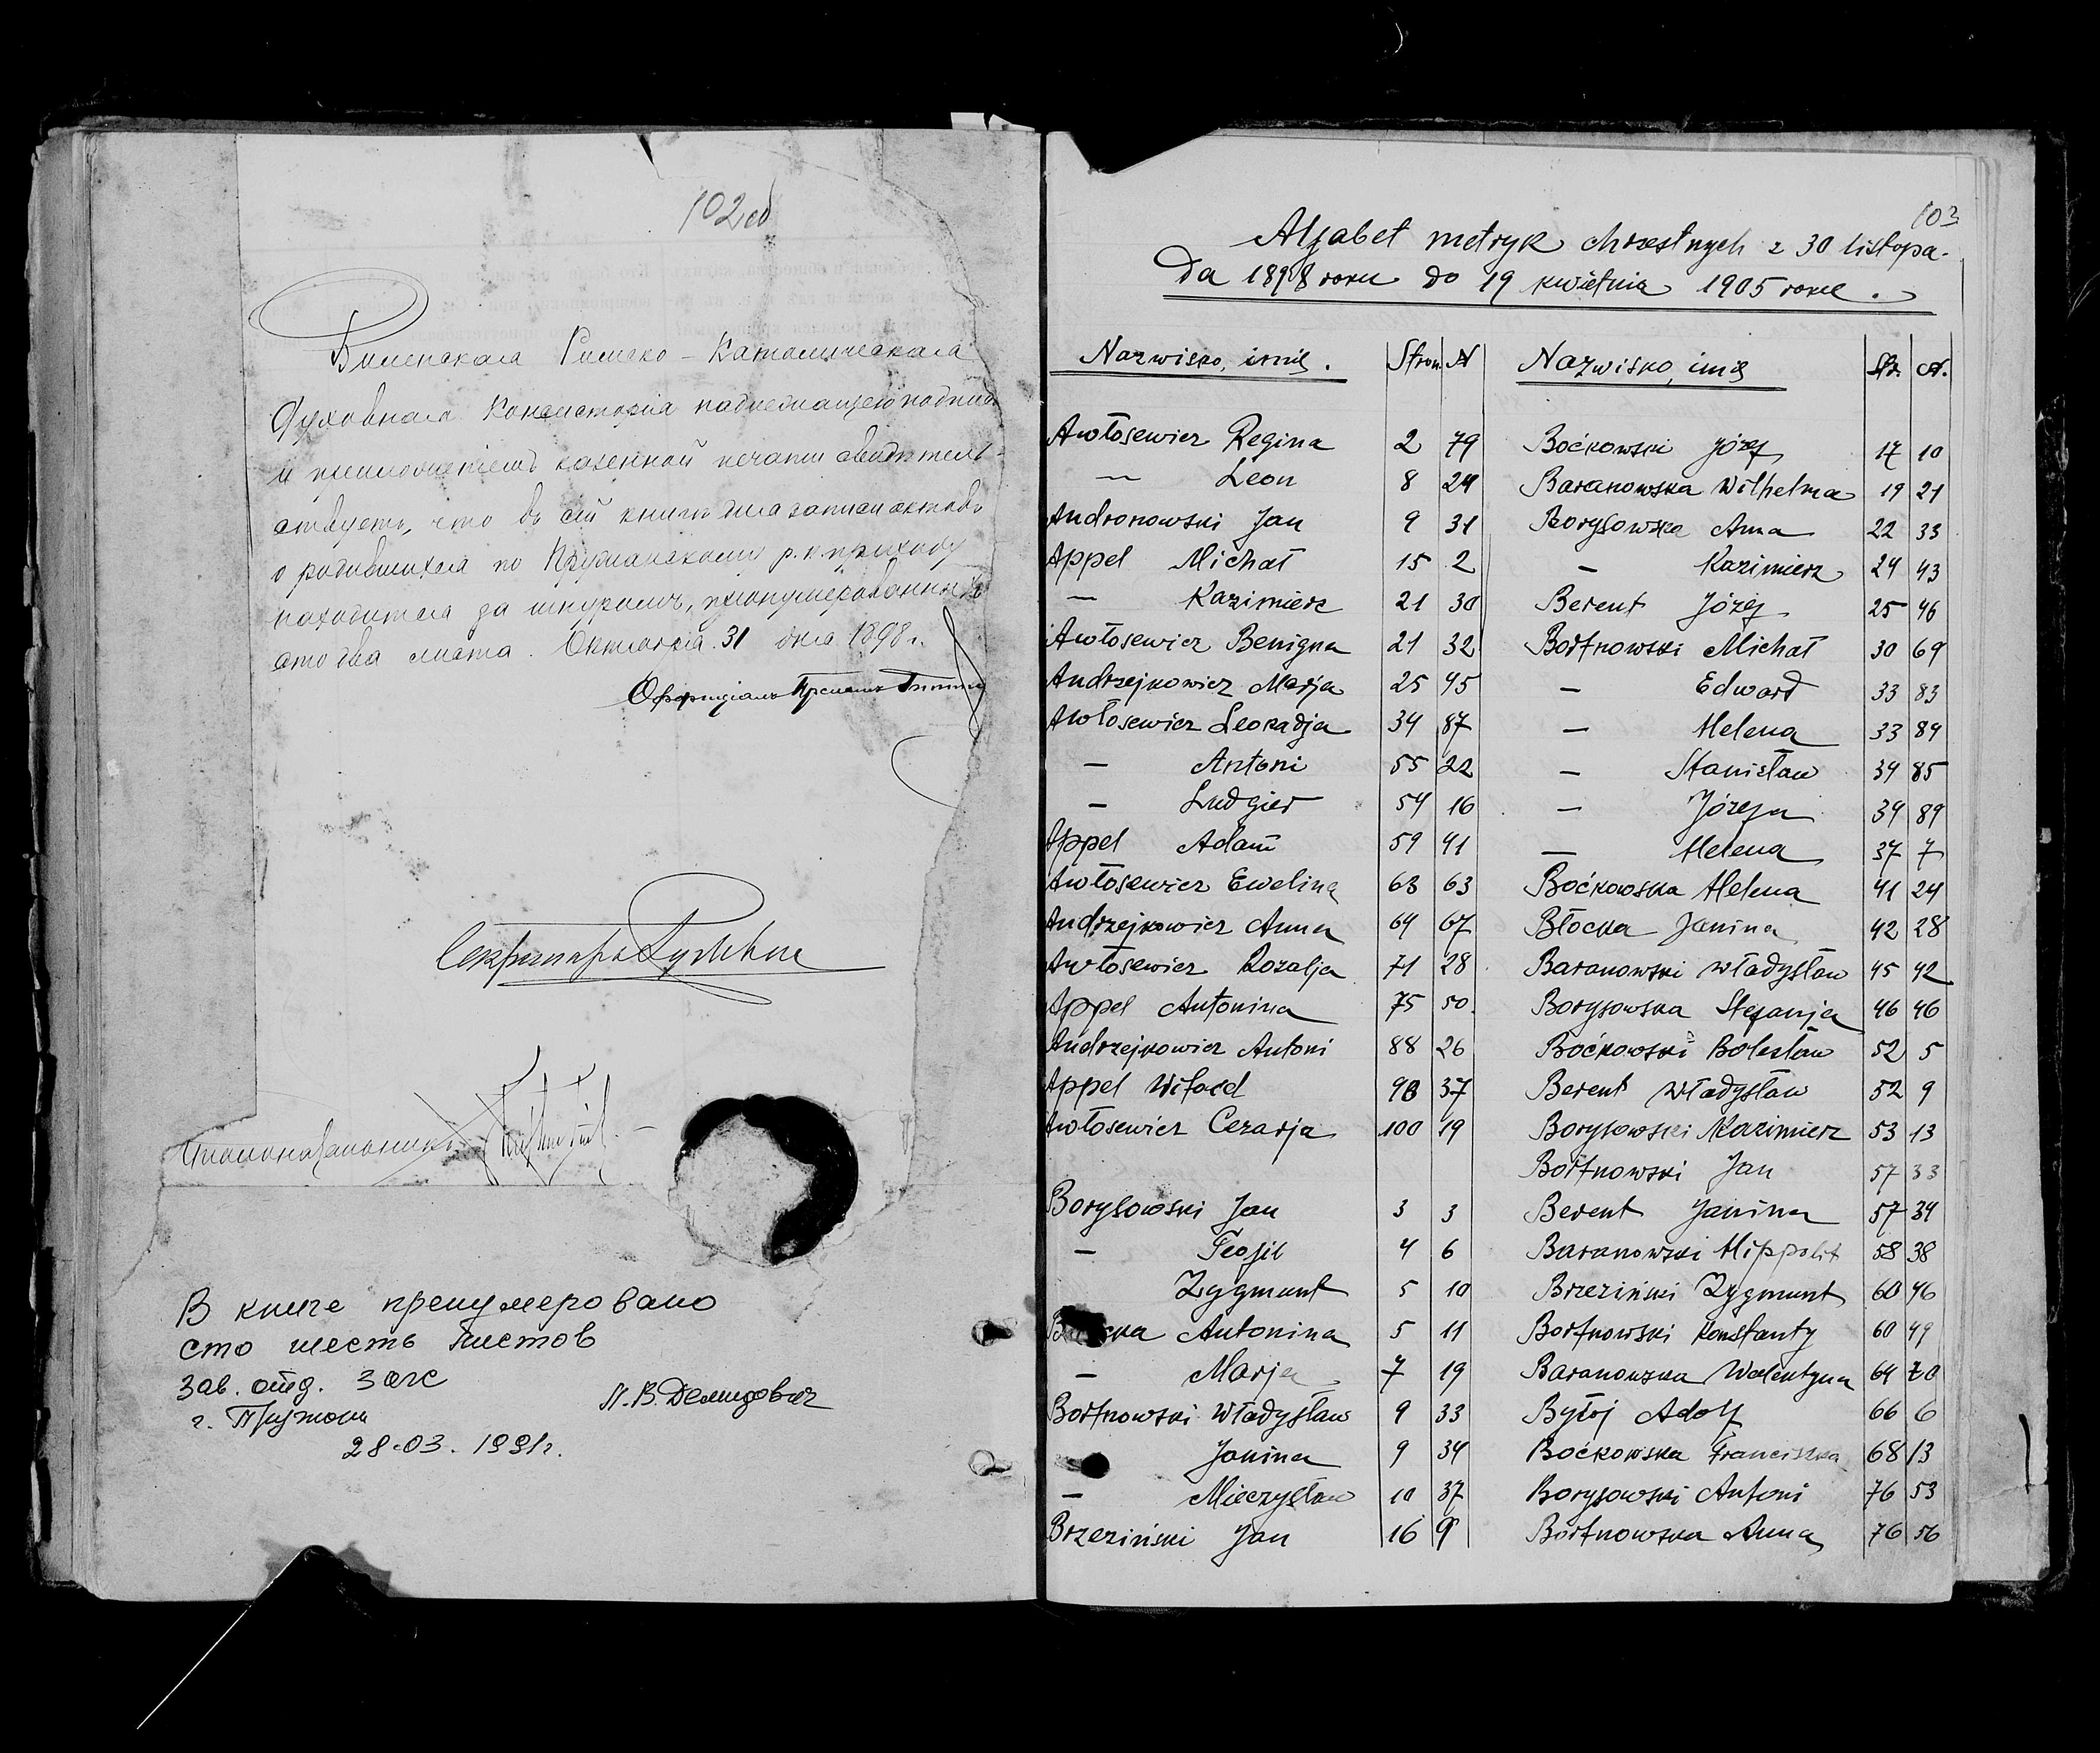 102об
Виленская Римско-Католическая
Духовная Консисторія надлежащею подписью
и приложеніемъ казенной печати свидѣтель-
ствуетъ, что въ сей книгѣ для записи актовъ
о родившихся по Пружанскому р. к. приходу
находится за шнуромъ, пронумерованныхъ
сто два листа. Октября 31 дня 1898 г.
Секретарь
В книге пренумеровано
сто шесть листов
Зав. отд. Загс
г. Пружаны
П.В. Демидович
28.03.1991г.
103
Alfabet metryk chrzestnych z 30 listopa-
da 1898 roku do 19 kwietnia 1905 roku.
Nazwisko, imię. Stron. N Nazwisko, imię Str. N.
Awłosewicz Regina 2 79 Boćkowski Józef 17 10
— Leon 8 24 Baranowska Wilhelma 19 21
Andronowski Jan 9 31 Borysowska Anna 22 33
Appel Michał 15 2 — Kazimierz 24 43
— Kazimierz 21 30 Berent Józef 25 46
Awłosewicz Benigna 21 32 Bortnowski Michał 30 69
Andrzejkowicz Marja 25 45 — Edward 33 83
Awłosewicz Leokadja 34 87 — Helena 33 84
— Antoni 55 22 — Stanisław 34 85
— Ludgier 54 16 — Józefa 34 89
Appel Adam 59 41 — Helena 37 7
Awłosewicz Ewelina 63 63 Boćkowska Helena 41 24
Andrzejkowicz Anna 64 67 Błocka Janina 42 28
Awłosewicz Rozalja 71 28 Baranowski Władysław 45 42
Appel Antonina 75 50 Borysowska Stefanja 46 46
Andrzejkowicz Antoni 88 26 Boćkowski Bolesław 52 5
Appel Witold 90 37 Berent Władysław 52 9
Awłosewicz Cezarja 100 19 Borysowski Kazimierz 53 13
Bortnowski Jan 57 33
Borysowski Jan 3 3 Berent Janina 57 34
— Teofil 4 6 Baranowski Hippolit 58 38
Zygmunt 5 10 Brzeziński Zygmunt 60 46
Antonina 5 11 Bortnowski Konstanty 60 49
— Marja 7 19 Baranowska Walentyna 64 70
Bortnowski Władysław 9 33 Byłoj Adolf 66 6
Janina 9 34 Boćkowska Franciszka 68 13
— Mieczysław 10 37 Borysowski Antoni 76 53
Brzeziński Jan 16 9 Bortnowska Anna 76 56